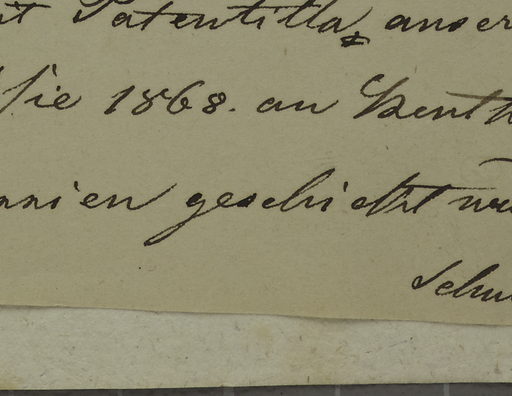 it Patentilla anser
Sie 1868. an Benth
nnien geschickt wu
Schw